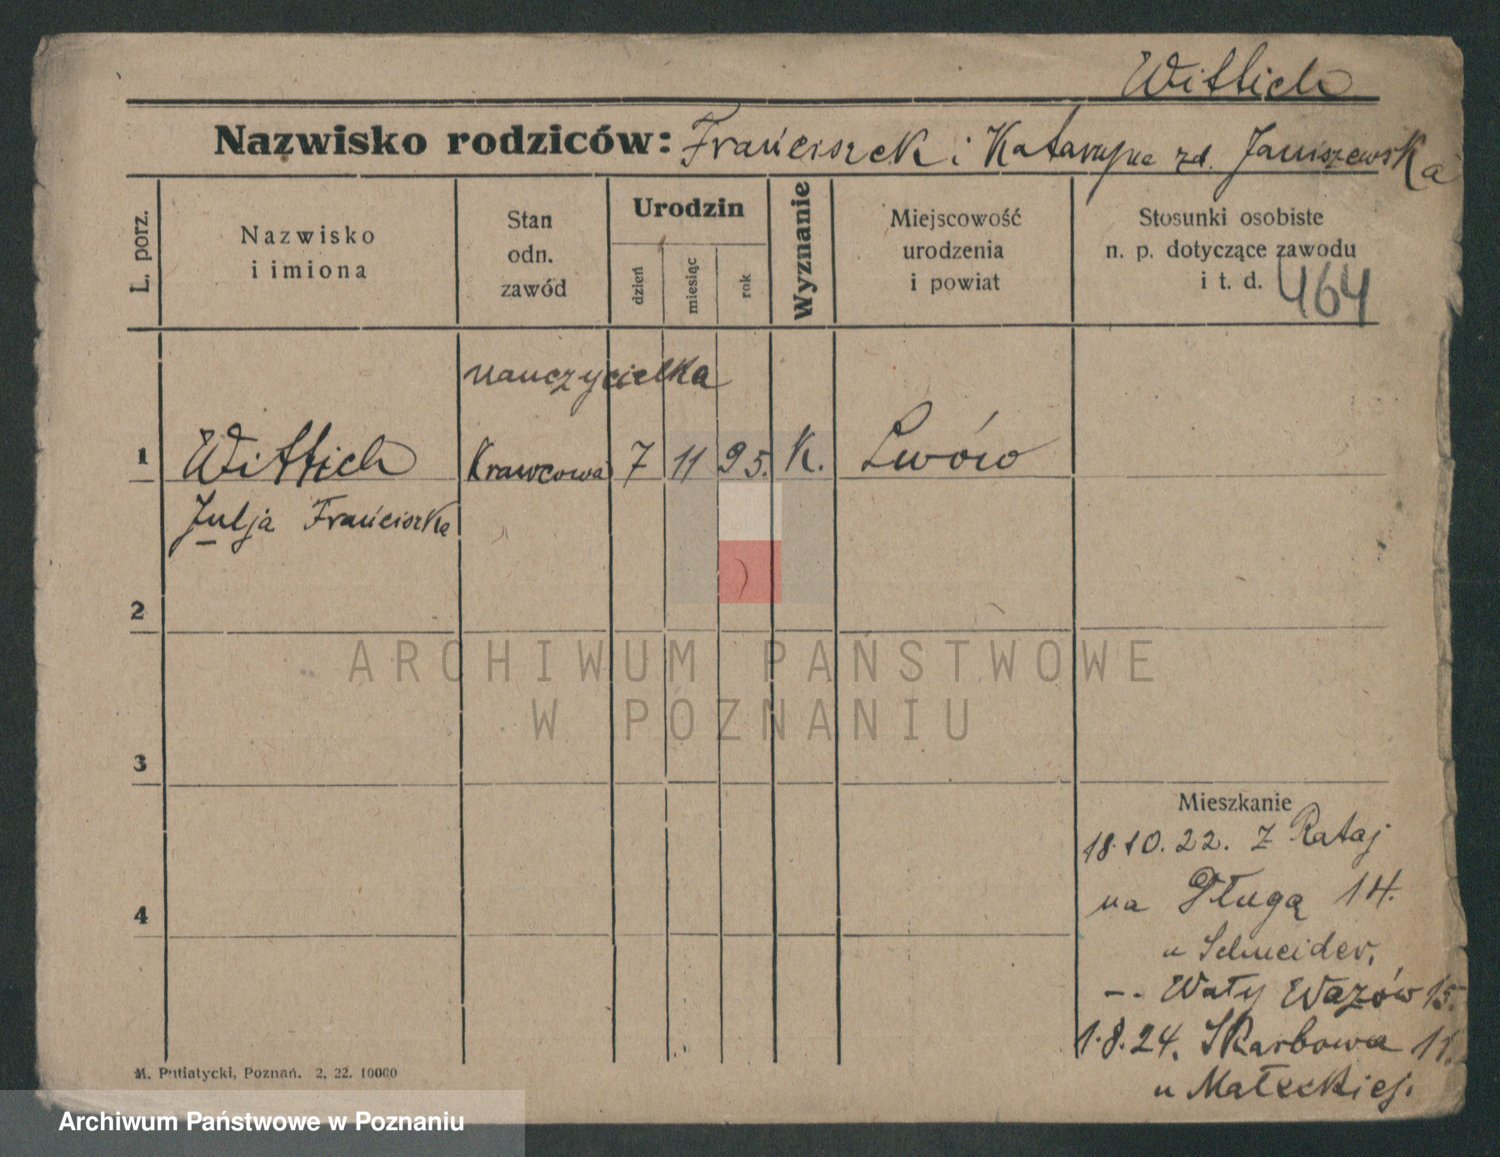 Wittich
Nazwisko rodziców: Franciszek i Katarzyna zd. Janiszewska
L. porz.
Nazwisko
i imiona
Stan
odn.
zawód
Urodzin
dzień
miesiąc
rok
Wyznanie
Miejscowość
urodzenia
i powiat
Stosunki osobiste
n. p. dotyczące zawodu
i t. d.
464
nauczycielka
1 Wittich Krawcowa 7 11 95. K. Lwów
Julja Franciszka
2
3
4
Mieszkanie
18.10.22. z Rataj
na Długą 14.
u Schneider.
-. Wały Wazów 15.
1.8.24. Skarbowa 11.
u Małeckiej.
M. Putiatycki, Poznań. 2. 22. 10000
ARCHIWUM PAŃSTWOWE
W POZNANIU
Archiwum Państwowe w Poznaniu